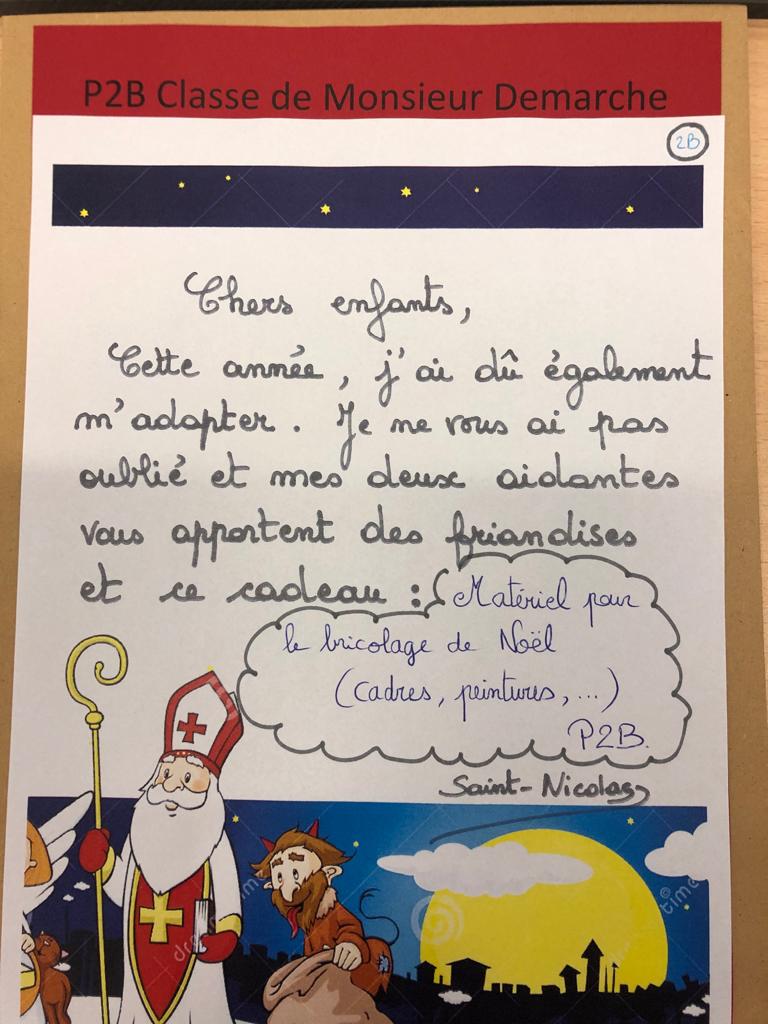 P2B Classe de Monsieur Demarche
2B
Chers enfants,
Cette année, j'ai dû également
m'adapter. Je ne vous ai pas
oublié et mes deux aidantes
vous apportent des friandises
et ce cadeau : Matériel pour
le bricolage de Noël
(cadres, peintures, ...)
P2B.
Saint-Nicolas